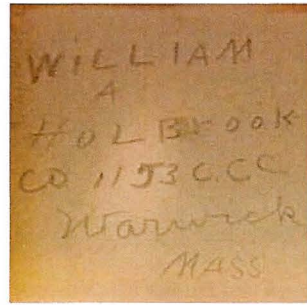 WILLIAM
A
HOLBrook
CO 1153 C.CC
Warwick
MASS